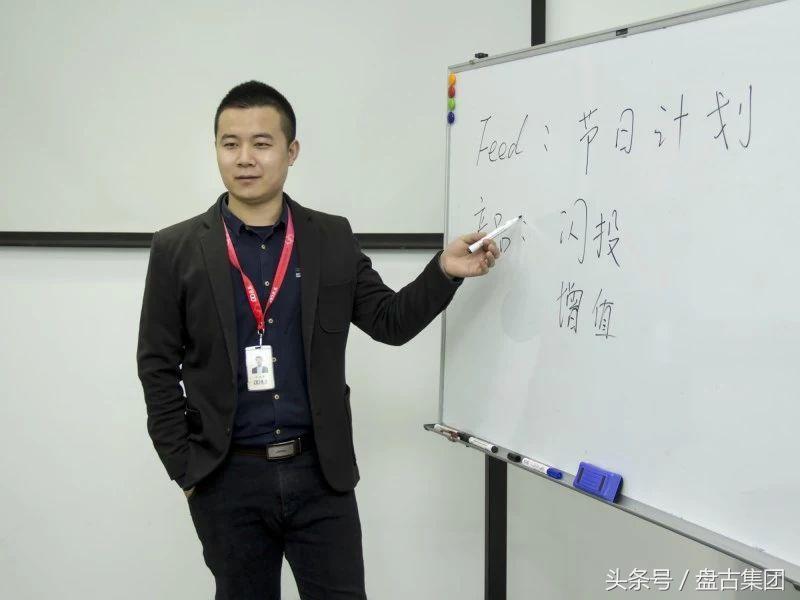 Feed：节目计划
产品：闪投
增值
头条号／盘古集团